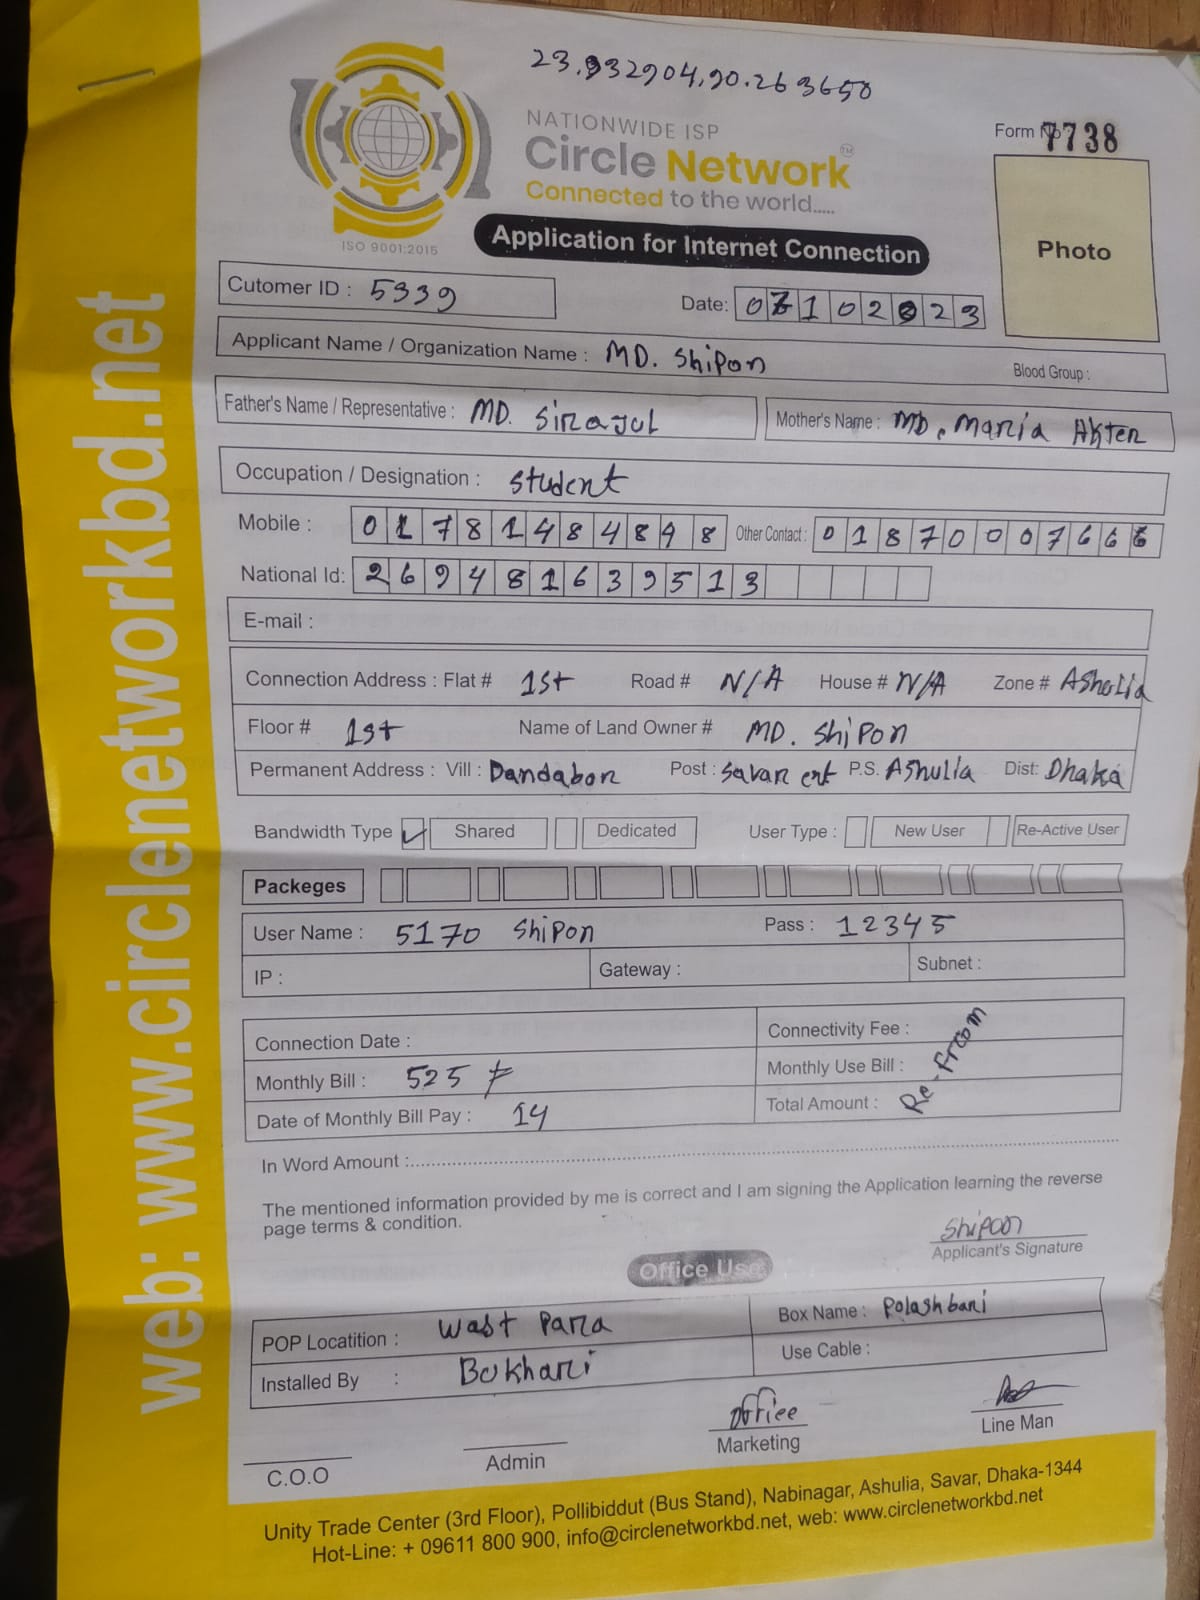 23.932904,90.263650
NATIONWIDE ISP
Circle Network™
Connected to the world.....
ISO 9001:2015
Form No 7738
Photo
Application for Internet Connection
Cutomer ID : 5339
Date: 07102023
Applicant Name / Organization Name : MD. Shipon
Blood Group :
Father's Name / Representative : MD. Sirajul
Mother's Name : MD. Maria Akter
Occupation / Designation : Student
Mobile : 01781484898 Other Contact : 01870007666
National Id: 269481639513
E-mail :
Connection Address : Flat # 1st Road # N/A House # N/A Zone # Ashulia
Floor # 1st Name of Land Owner # MD. Shipon
Permanent Address : Vill : Dandabon Post : Savar P.S. Ashulia Dist: Dhaka
Bandwidth Type ✓ Shared Dedicated User Type : New User Re-Active User
Packeges
User Name : 5170 Shipon Pass : 12345
IP : Gateway : Subnet :
Connection Date : Connectivity Fee :
Monthly Bill : 525 Monthly Use Bill :
Date of Monthly Bill Pay : 14 Total Amount :
Re-From
In Word Amount :
The mentioned information provided by me is correct and I am signing the Application learning the reverse
page terms & condition.
Shipon
Applicant's Signature
Office Use
POP Locatition : Wast Para Box Name : Polashbari
Installed By : Bokhari Use Cable :
office
C.O.O Admin Marketing Line Man
Unity Trade Center (3rd Floor), Pollibiddut (Bus Stand), Nabinagar, Ashulia, Savar, Dhaka-1344
Hot-Line: + 09611 800 900, info@circlenetworkbd.net, web: www.circlenetworkbd.net
web: www.circlenetworkbd.net